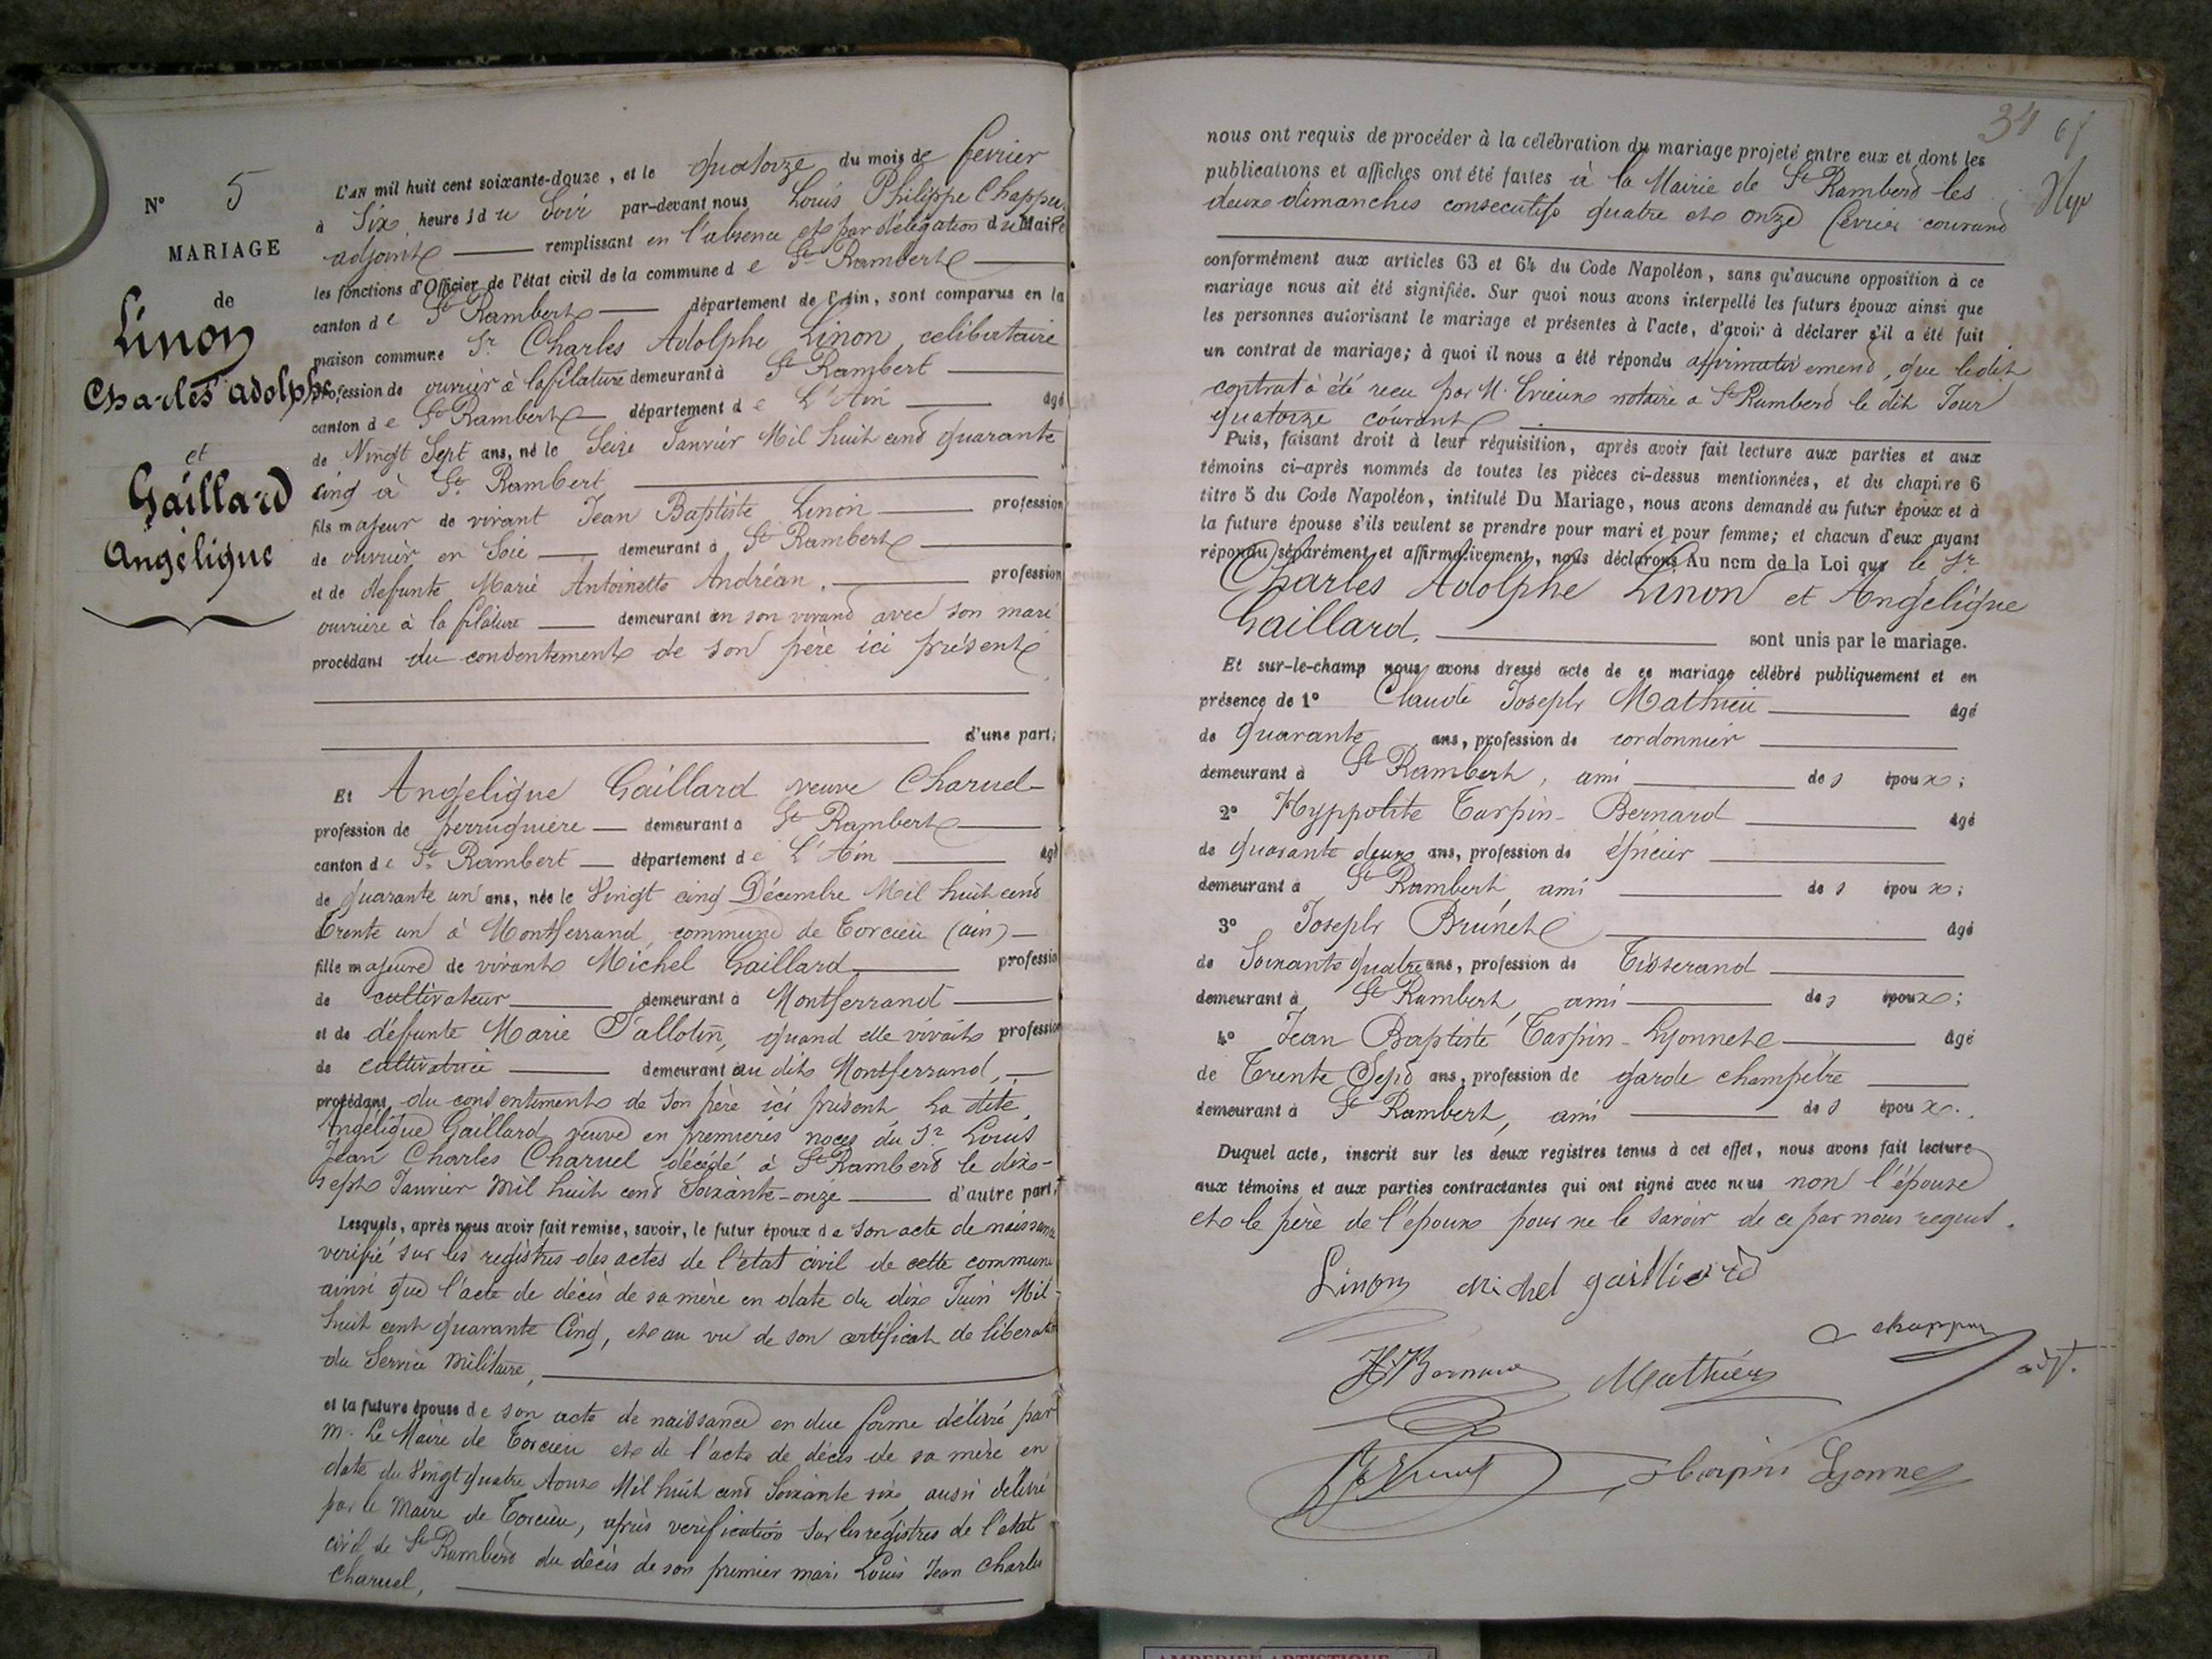 N° 5
MARIAGE
de
Linon
Charles adolphe
et
Gaillard
Angélique
L'AN mil huit cent soixante-douze, et le quatorze du mois de fevrier
à Six heures du Soir par-devant nous Louis Philippe Chappu
adjoint remplissant en l'absence et par délégation du Maire
les fonctions d'Officier de l'état civil de la commune de St Rambert
canton de St Rambert département de l'Ain, sont comparus en la
maison commune Sr Charles Adolphe Linon, celibataire
profession de ouvrier à la filature demeurant à St Rambert
canton de St Rambert département de L'Ain âgé
de Vingt Sept ans, né le Seize Janvier Mil huit cent quarante
cinq à St Rambert
fils majeur de vivant Jean Baptiste Linon profession
de ouvrier en Soie demeurant à St Rambert
et de defunte Marie Antoinette Andréan. profession
ouvriere à la filature demeurant en son vivant avec son mari
procédant du consentement de son père ici présent
d'une part;
Et Angelique Gaillard veuve Charuel
profession de perruquière demeurant à St Rambert
canton de St Rambert département de L'Ain âgé
de quarante un ans, née le Vingt cinq Décembre Mil huit cent
trente un à Montferrand, commune de Torcieu (ain)
fille majeure de vivant Michel Gaillard profession
de cultivateur demeurant à Montferrand
et de défunte Marie Sallotin, quand elle vivait profession
de cultivatrice demeurant au dit Montferrand,
procédant du consentement de son père ici présent, La dite
Angélique Gaillard veuve en premières noces du Sr Louis
Jean Charles Charuel décédé à St Rambert le dix-
sept Janvier Mil huit cent Soixante-onze d'autre part;
Lesquels, après nous avoir fait remise, savoir, le futur époux de son acte de naissance
verifié sur les registres des actes de l'état civil de cette commune
ainsi que l'acte de décès de sa mère en date du dix Juin Mil
huit cent quarante Cinq, et au vu de son certificat de liberation
du Service Militaire,
et la future épouse de son acte de naissance en due forme délivré par
M. Le Maire de Torcieu et de l'acte de décès de sa mère en
date du Vingt quatre Aout Mil huit cent Soixante six, aussi délivré
par le Maire de Torcieu, après verification Sur les registres de l'etat
civil de St Rambert du décès de son premier mari Louis Jean Charles
Charuel,
34
nous ont requis de procéder à la célébration du mariage projeté entre eux et dont les
publications et affiches ont été faites à la Mairie de St Rambert les
deux dimanches consecutifs quatre et onze fevrier courant
conformément aux articles 63 et 64 du Code Napoléon, sans qu'aucune opposition à ce
mariage nous ait été signifiée. Sur quoi nous avons interpellé les futurs époux ainsi que
les personnes autorisant le mariage et présentes à l'acte, d'avoir à déclarer s'il a été fait
un contrat de mariage; à quoi il nous a été répondu affirmativement, que le dit
contrat à été reçu par M. notaire a St Rambert le dit Jour
quatorze courant
Puis, faisant droit à leur réquisition, après avoir fait lecture aux parties et aux
témoins ci-après nommés de toutes les pièces ci-dessus mentionnées, et du chapitre 6
titre 5 du Code Napoléon, intitulé Du Mariage, nous avons demandé au futur époux et à
la future épouse s'ils veulent se prendre pour mari et pour femme; et chacun d'eux ayant
répondu séparément et affirmativement, nous déclarons Au nom de la Loi que le Sr
Charles Adolphe Linon et Angelique
Gaillard. sont unis par le mariage.
Et sur-le-champ nous avons dressé acte de ce mariage célébré publiquement et en
présence de 1° Claude Joseph Mathieu âgé
de quarante ans, profession de cordonnier
demeurant à St Rambert, ami des époux;
2° Hyppolite Tarpin-Bernard âgé
de quarante deux ans, profession de épicier
demeurant à St Rambert, ami des époux;
3° Joseph Brunet âgé
de Soixante quatre ans, profession de Tisserand
demeurant à St Rambert, ami des époux;
4° Jean Baptiste Tarpin-Lyonnet âgé
de Trente Sept ans, profession de garde champêtre
demeurant à St Rambert, ami des époux.
Duquel acte, inscrit sur les deux registres tenus à cet effet, nous avons fait lecture
aux témoins et aux parties contractantes qui ont signé avec nous non l'épouse
et le père de l'époux pour ne le savoir de ce par nous requis.
Linon Michel gaillard
chappuy
adjt.
Mathieu
tarpin Lyonnet
AMBERIEU ARTISTIQUE